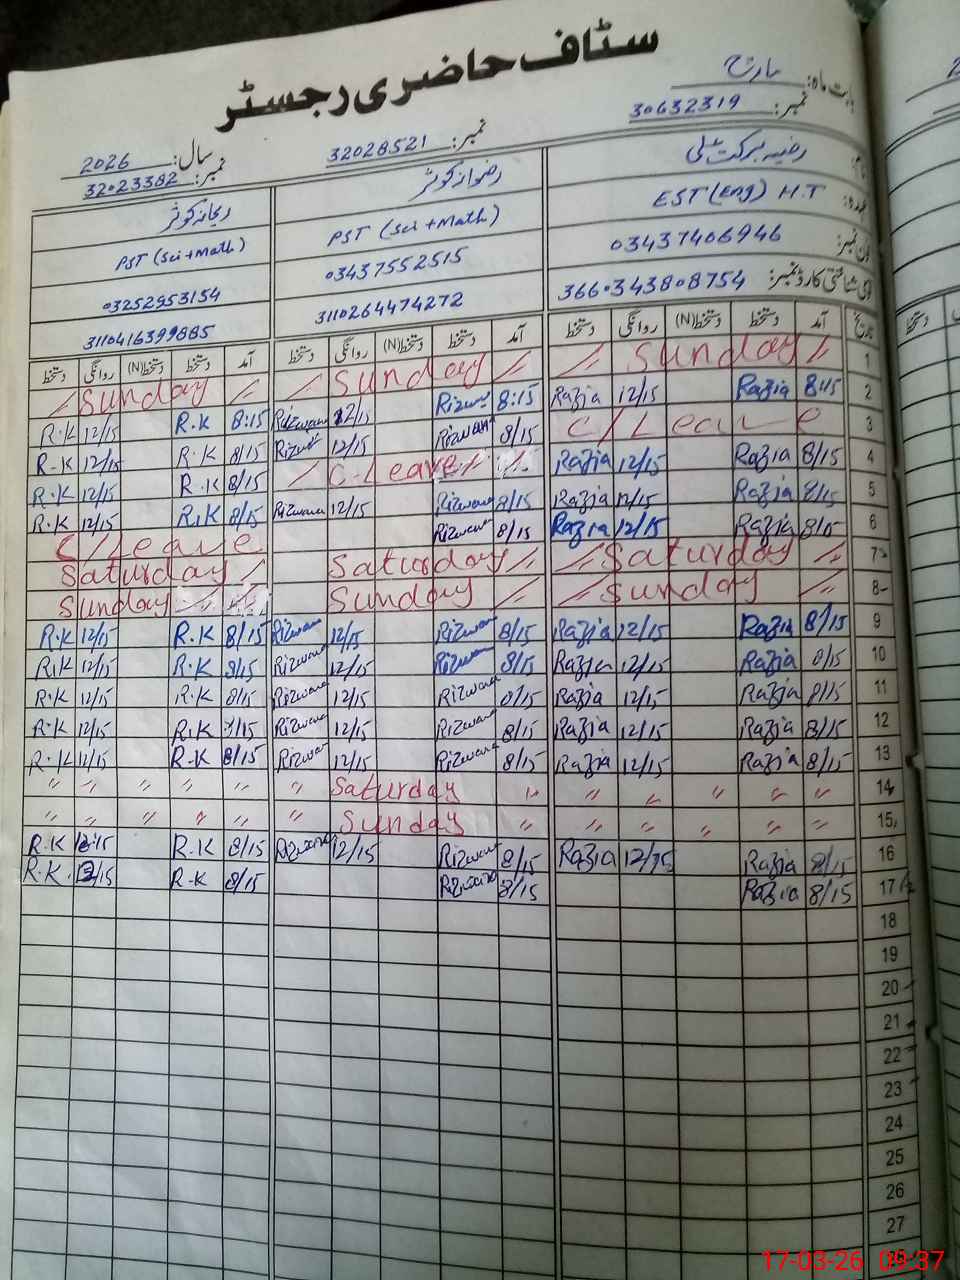 سٹاف حاضری رجسٹر
بابت ماہ: مارچ
سال: 2026
نمبر: 30632319
نمبر: 32028521
نمبر: 32023382
نام: رضیہ برکت علی
رضوانہ کوثر
ریحانہ کوثر
عہدہ: EST (Eng) H.T
PST (Sci + Math)
PST (Sci + Math)
فون نمبر: 03437406946
03437552515
03252953154
قومی شناختی کارڈ نمبر: 3660343808754
3110264474272
3110416399885
تاریخ آمد دستخط دستخط(N) روانگی دستخط آمد دستخط دستخط(N) روانگی دستخط آمد دستخط دستخط(N) روانگی دستخط
〃 Sunday 〃 〃 Sunday 〃 〃 Sunday 〃 1
R.K 12/15 R.K 8:15 Rizwana 12/15 Rizwana 8:15 Razia 12/15 Razia 8:15 2
R.K 12/15 R.K 8/15 Rizwana 12/15 Rizwana 8/15 C/Leave 3
R.K 12/15 R.K 8/15 〃 C.Leave 〃 Razia 12/15 Razia 8/15 4
R.K 12/15 R.K 8/15 Rizwana 12/15 Rizwana 8/15 Razia 12/15 Razia 8/15 5
C/Leave Rizwana 8/15 Razia 12/15 Razia 8/15 6
Saturday 〃 Saturday 〃 〃 Saturday 〃 7
Sunday 〃 〃 Sunday 〃 〃 Sunday 〃 8
R.K 12/15 R.K 8/15 Rizwana 12/15 Rizwana 8/15 Razia 12/15 Razia 8/15 9
R.K 12/15 R.K 8/15 Rizwana 12/15 Rizwana 8/15 Razia 12/15 Razia 8/15 10
R.K 12/15 R.K 8/15 Rizwana 12/15 Rizwana 8/15 Razia 12/15 Razia 8/15 11
R.K 12/15 R.K 8/15 Rizwana 12/15 Rizwana 8/15 Razia 12/15 Razia 8/15 12
R.K 12/15 R.K 8/15 Rizwana 12/15 Rizwana 8/15 Razia 12/15 Razia 8/15 13
〃 〃 〃 〃 〃 〃 Saturday 〃 〃 〃 〃 〃 〃 14
〃 〃 〃 〃 〃 〃 Sunday 〃 〃 〃 〃 〃 〃 15
R.K 12:15 R.K 8/15 Rizwana 12/15 Rizwana 8/15 Razia 12/15 Razia 8/15 16
R.K 12/15 R.K 8/15 Rizwana 8/15 Razia 8/15 17
18
19
20
21
22
23
24
25
26
27
17-03-26 09:37